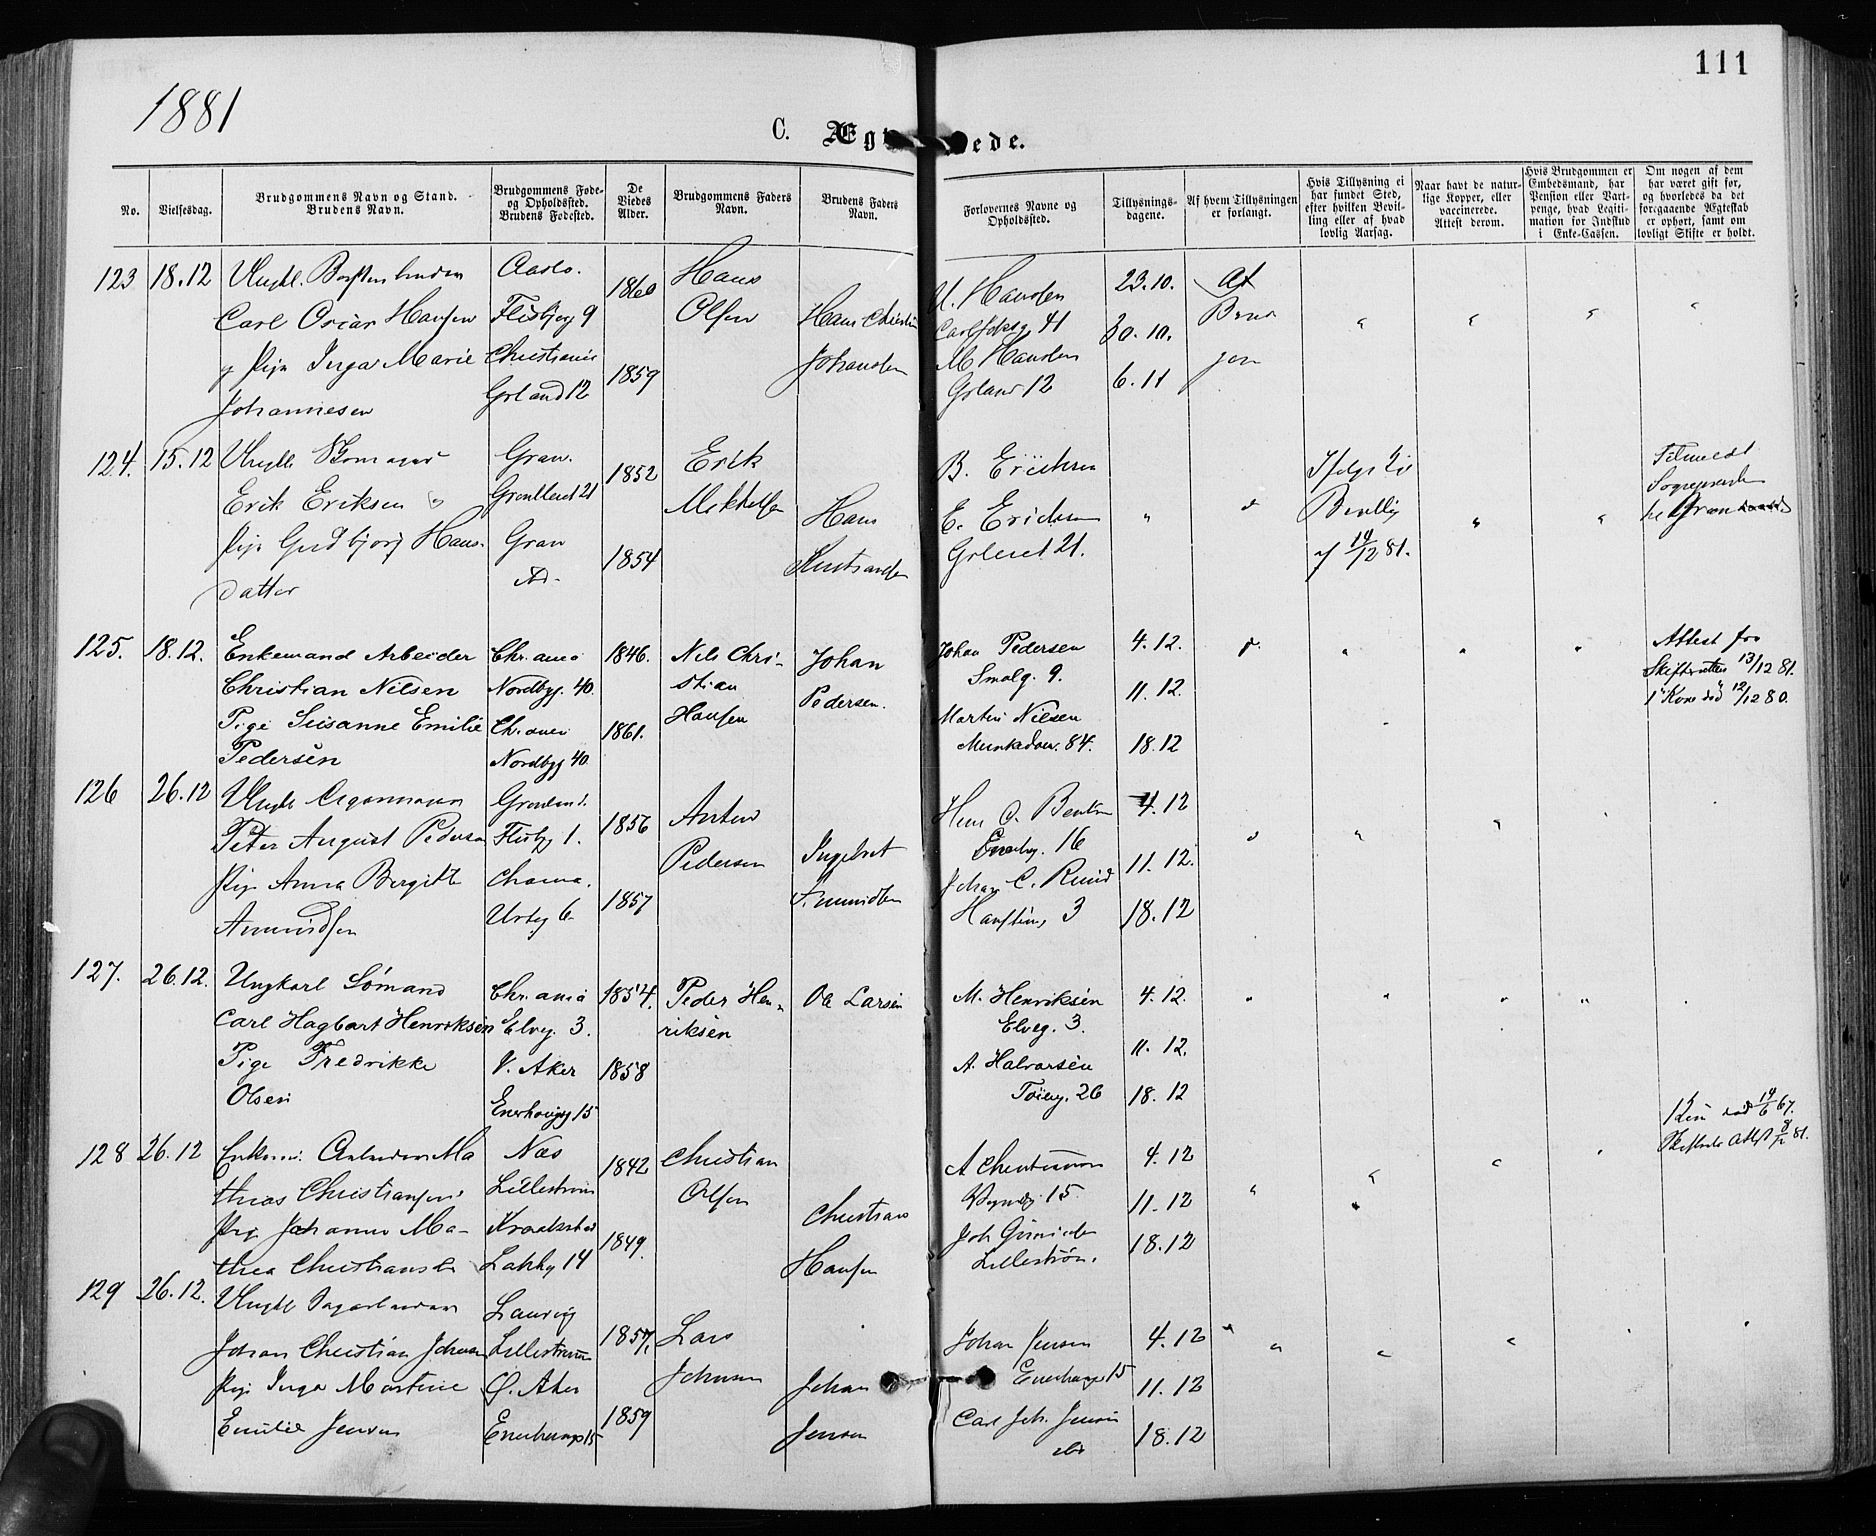 1881
111
C. Ægt ede.
No.
Vielsesdag.
Brudgommens Navn og Stand.
Brudens Navn.
Brudgommens Føde-
og Opholdssted.
Brudens Fødested.
De
Viedes
Alder.
Brudgommens Faders
Navn.
Brudens Faders
Navn.
Forlovernes Navne og
Opholdssted.
Tillysnings-
dagene.
Af hvem Tillysningen
er forlangt.
Hvis Tillysning ei
har fundet Sted,
efter hvilken Bevil-
ling eller af hvad
lovlig Aarsag.
Naar havt de natur-
lige Kopper, eller
vaccinerede.
Attest derom.
Hvis Brudgommen er
Embedsmand, har
Pension eller Vart-
penge, hvad Legiti-
mation for Indskud
i Enke-Cassen.
Om nogen af dem
har været gift før,
og hvorledes da det
foregaaende Ægteskab
er ophørt, samt om
lovligt Skifte er holdt.
123 18.12 Ungkl.
Carl Oscar Hansen
g Pige Inga Marie
Johannesen
Aaslo.
Flisbyg 9
Christiania
Grland 12
1860
1859
Hans
Olsen
Hans Christian
Johansen
U. Hansen
41
M Hansen
Grland 12
23.10.
30.10.
6.11
Af
124. 15.12 Ungkl
Erik Eriksen
Pige Gudbjorg Hans-
datter
Gran.
Grønlleret 21
Gran
1852
1854
Erik
Mikkelsen
Hans
B. Erichsen
E. Erichsen
Grleret 21.
Ifølge
Bevillg
af 14/12 81.
Tilmeldt
Sogneprest
til Gran
125. 18.12. Enkemand Arbeider
Christian Nilsen
Pige Susanne Emilie
Pedersen
Chr.ania
Nordbyg. 40.
Chr.ania
Nordbyg 40.
1846.
1861.
Nils Chri-
stian
Hansen
Johan
Pedersen.
Johan Pedersen
Smalg. 9.
Martin Nilsen
Munkedamv. 84.
4.12.
11.12.
18.12
Attest fra
Skifteretten 13/12 81.
1ste Kone død 12/12 80.
126 26.12 Ungkl
Peter August Pedersen
Pige Anna Birgitte
Amundsen
Grønland.
Flisbg 1.
Chania.
Urteg 6
1856
1857
Anton
Pedersen
Ingebret
Amundsen
Eneby. 16
Johan C. Ruud
3
4.12
11.12.
18.12
127. 26.12. Ungkarl Sømand
Carl Hagbart Henriksen
Pige Fredrikke
Olsen
Chr.ania
Elveg. 3.
V. Aker
Enerhaugg 15
1854.
1858
Peder Hen-
riksen
Ole Larsen
M. Henriksen
Elveg. 3.
A. Halvorsen
Tøieng. 26
4.12.
11.12.
18.12
128 26.12 Ma
thias Christiansen
Pige Johanne Ma-
thea Christiansen
Næs
Lillestrøm
Kraakstad
Lakkg 14
1842
1849.
Christian
Olsen
Christian
Hansen
A Christiansen
15
Joh
Lillestrøm.
4.12
11.12
18.12
1 død 14/6 67.
Attest 81.
129 26.12. Ungkl
Johan Christian Johnsen
Pige Inga Martine
Emilie Jensen
Laurvig
Lillestrøm
Ø. Aker
Enerhaug 15
1857.
1859
Lars
Johnsen
Johan
Jensen
Johan Jensen
Enerhaug 15
Carl Joh. Jensen
4.12
11.12
18.12